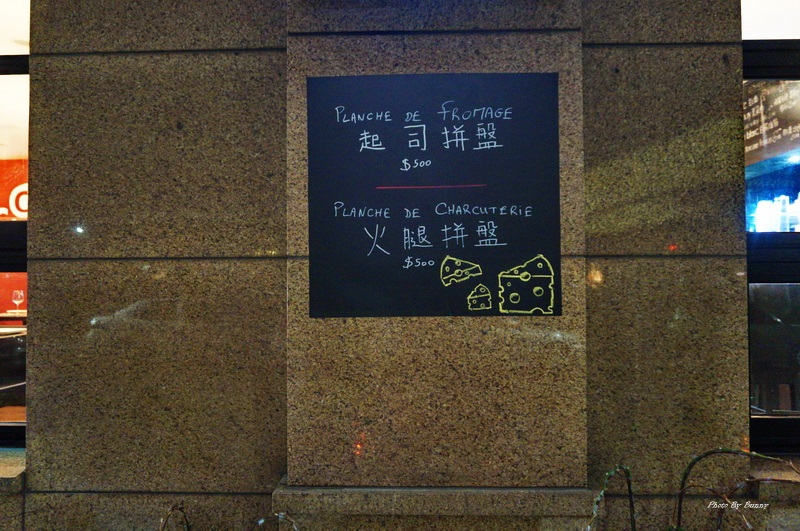 PLANCHE DE FROMAGE
起司拼盤
$500
PLANCHE DE CHARCUTERIE
火腿拼盤
$500
Photo By Bunny